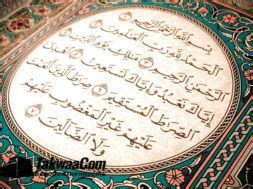 بسم الله الرحمن الرحيم
الحمد لله رب العلمين
الرحمن الرحيم ملك يوم الدين
إياك نعبد وإياك نستعين اهدنا
الصراط المستقيم صراط الذين أنعمت
عليهم غير المغضوب عليهم
ولا الضالين
TakwaaCom